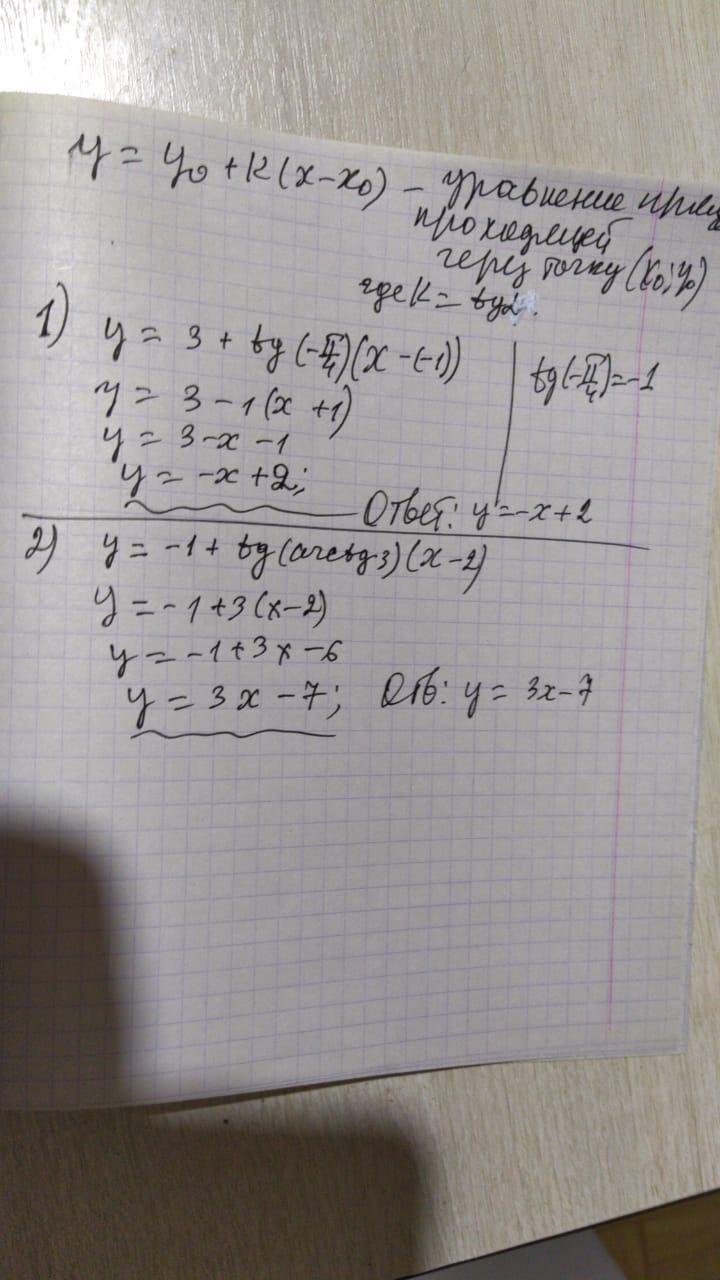 y = y₀ + k(x-x₀) - уравнение
проходящей
через точку (x₀; y₀)
где k = tgα.
1) y = 3 + tg(-π/4)(x - (-1))
tg(-π/4) = -1
y = 3 - 1(x + 1)
y = 3 - x - 1
y = -x + 2;
Ответ: y = -x + 2
2) y = -1 + tg(arctg 3)(x - 2)
y = -1 + 3(x - 2)
y = -1 + 3x - 6
y = 3x - 7; Отв: y = 3x - 7